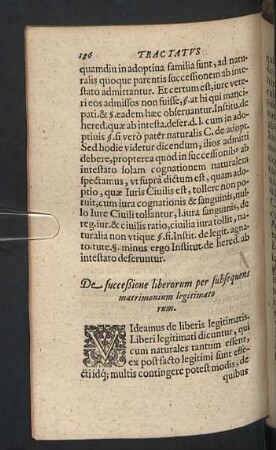 186 TRACTATVS
quamdiu in adoptiua familia sunt, ad natu-
ralis quoque parentis successionem ab inte-
stato admittantur. Et certum est, iure vete-
ri eos admissos non fuisse, §. at hi qui manci-
pati. & §. eadem hæc obseruantur. Institu. de
hered. quæ ab intesta. defer. d. l. cum in adop-
tiuis §. si verò pater naturalis C. de adopt.
Sed hodie videtur dicendum, illos admitti
debere, propterea quod in successionib9 ab
intestato solam cognationem naturalem
spectamus, vt suprà dictum est, quam ado-
ptio, quæ Iuris Ciuilis est, tollere non po-
tuit, cum iura cognationis & sanguinis, nul-
lo Iure Ciuili tollantur, l. iura sanguinis, de
reg. iur. & ciuilis ratio, ciuilia iura tollit, na-
turalia non vtique §. fi. Instit. de legit. agna-
to. tute. §. minus ergo Institut. de hered. ab
intestato deferuntur.
De successione liberorum per subsequens
matrimonium legitimato
rum.
VIdeamus de liberis legitimatis.
Liberi legitimati dicuntur, qui
cum naturales tantum essent,
ex post facto legitimi sunt effe-
cti idq; multis contingere potest modis, de
quibus